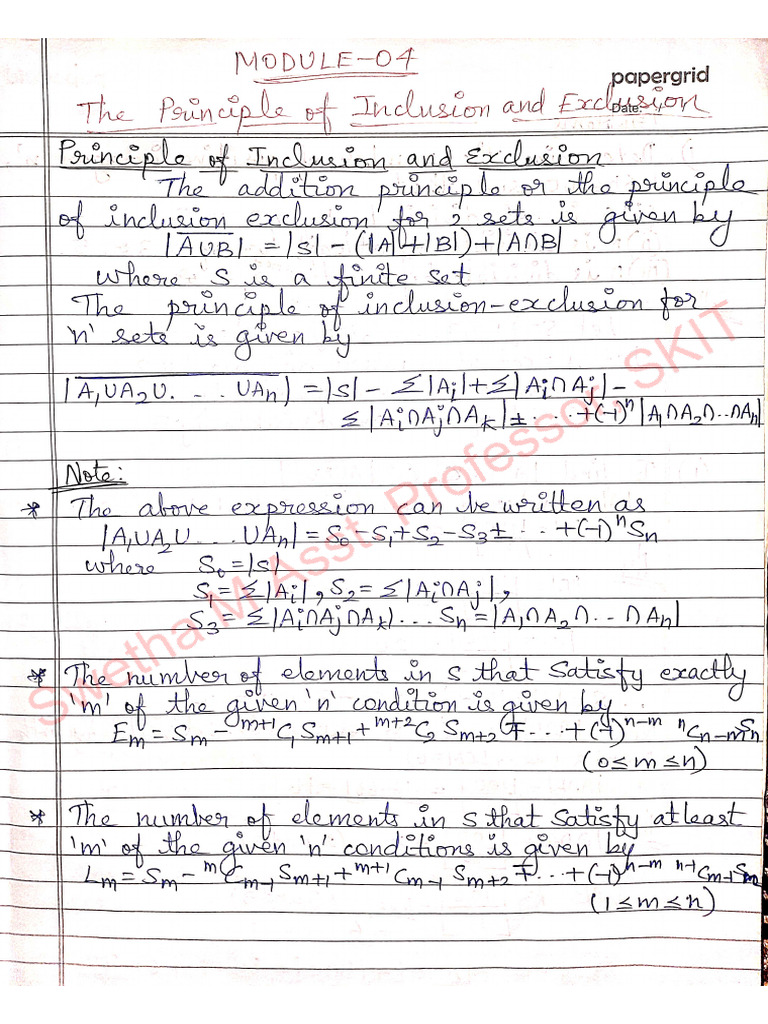 MODULE-04
papergrid
Date:
The Principle of Inclusion and Exclusion
Principle of Inclusion and Exclusion
The addition principle or the principle
of inclusion exclusion for 2 sets is given by
|A̅U̅B̅| = |S| - (|A|+|B|)+|A∩B|
where S is a finite set
The principle of inclusion-exclusion for
'n' sets is given by
|A̅₁̅U̅A̅₂̅U̅.̅ ̅.̅ ̅.̅ ̅U̅A̅ₙ̅| = |S| - Σ|Aᵢ|+Σ|Aᵢ∩Aⱼ| -
Σ|Aᵢ∩Aⱼ∩Aₖ| ± . . . +(-1)ⁿ |A₁∩A₂∩..∩Aₙ|
Note:
* The above expression can be written as
|A₁UA₂U . . . UAₙ| = S₀-S₁+S₂-S₃± . . +(-1)ⁿSₙ
where S₀=|S|
S₁=Σ|Aᵢ|, S₂=Σ|Aᵢ∩Aⱼ|,
S₃=Σ|Aᵢ∩Aⱼ∩Aₖ|... Sₙ=|A₁∩A₂∩..∩Aₙ|
* The number of elements in S that Satisfy exactly
'm' of the given 'n' condition is given by
Eₘ = Sₘ - ᵐ⁺¹C₁Sₘ₊₁ + ᵐ⁺²C₂ Sₘ₊₂ ∓ . . . +(-1)ⁿ⁻ᵐ ⁿCₙ₋ₘSₙ
(0≤m≤n)
* The number of elements in S that Satisfy atleast
'm' of the given 'n' conditions is given by
Lₘ = Sₘ - ᵐCₘ₋₁Sₘ₊₁ + ᵐ⁺¹Cₘ₋₁ Sₘ₊₂ ∓ . . . +(-1)ⁿ⁻ᵐ
(1≤m≤n)
Swetha M Asst. Professor, SKIT